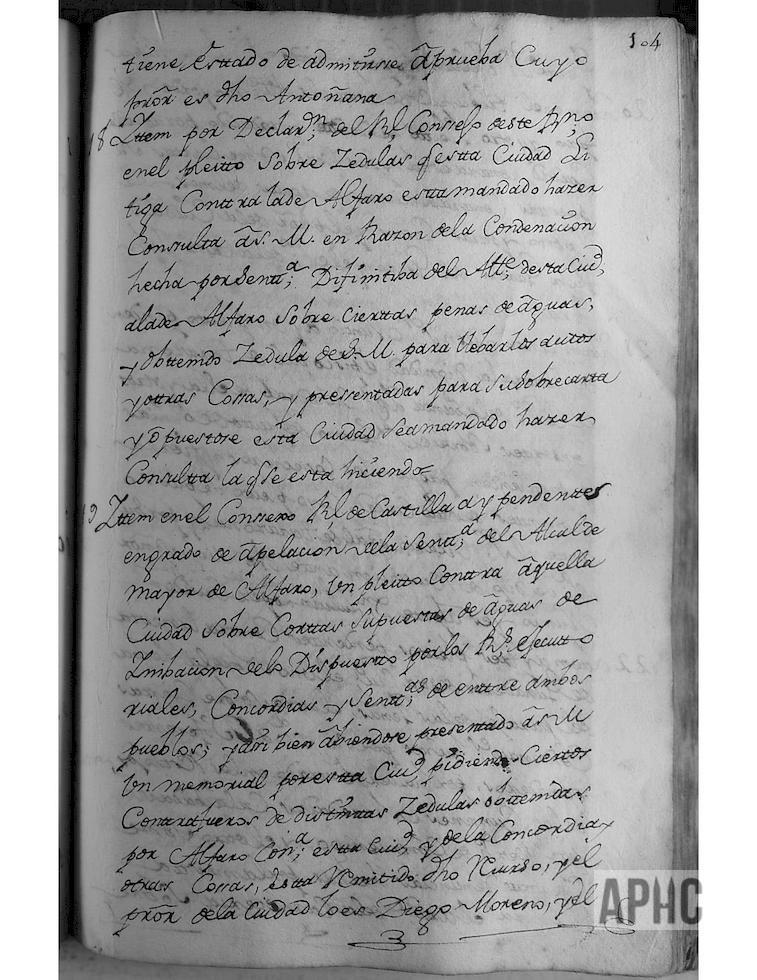 104
tiene Estado de admitirse a prueba Cuyo
pror es dho Antoñana
18 Yttem por Declaron del Rl Consejo deste Rno
enel pleitto sobre Zedulas q estta Ciudad Li
tiga Conttra lade Alfaro estta mandado hazer
Consulta a s. M. en Razon dela Condenacion
hecha por Sentta Difinitiba del Alle desta Ciud
alade Alfaro sobre ciertas penas de aguas,
y obttenido Zedula de S. M. para llebar los autos
y ottras Cossas, y presentadas para su sobrecarta
y opuestose esta Ciudad se a mandado hazer
Consultta la qe se esta hiciendo
19 Yttem enel Consexo Rl de Castilla ay pendenttes
engrado de apelacion dela Senta del Alcalde
mayor de Alfaro, Un pleitto Conttra aquella
Ciudad sobre Corttas supuestas de aguas de
delo Dispuesto por los Rs Executto
riales, Concordias y Senttas de enttre ambos
pueblos; y assi bien abiendose presentado a s M
Un memorial por estta Ciud pidiendo Ciertos
Contrafueros de disttintas Zedulas obttenidas
por Alfaro Conra estta Ciud y de la Concordia, y
otras Cossas, Estta Remitido dho Recurso, y el
pror dela Ciudad lo es Diego Moreno, y del
APHC